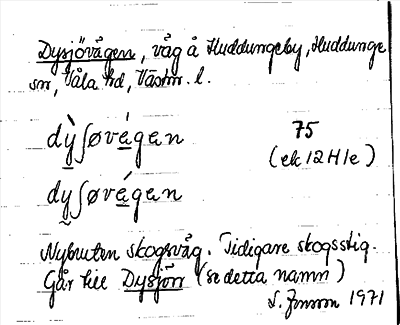 Dysjövågen, våg å Huddungeby, Huddunge
sn, Våla hd, Västm. l.
dỳʃøvégen
75
(ek 12H1e)
dyʃøvégen
Nybruten skogsvåg. Tidigare skogsstig.
Går till Dysjön (se detta namn)
S. Jonson 1971